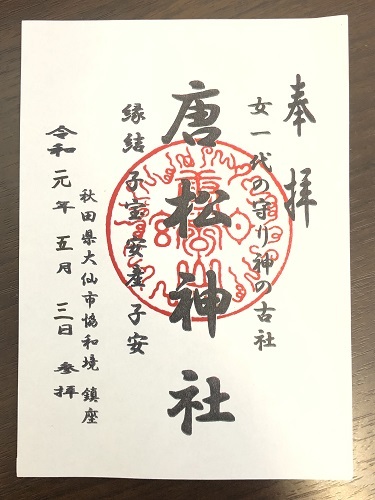 奉拝
女一代の守り神の古社
唐松神社
縁結 子宝 安産 子安
秋田県大仙市協和境 鎮座
令和元年五月三日 参拝